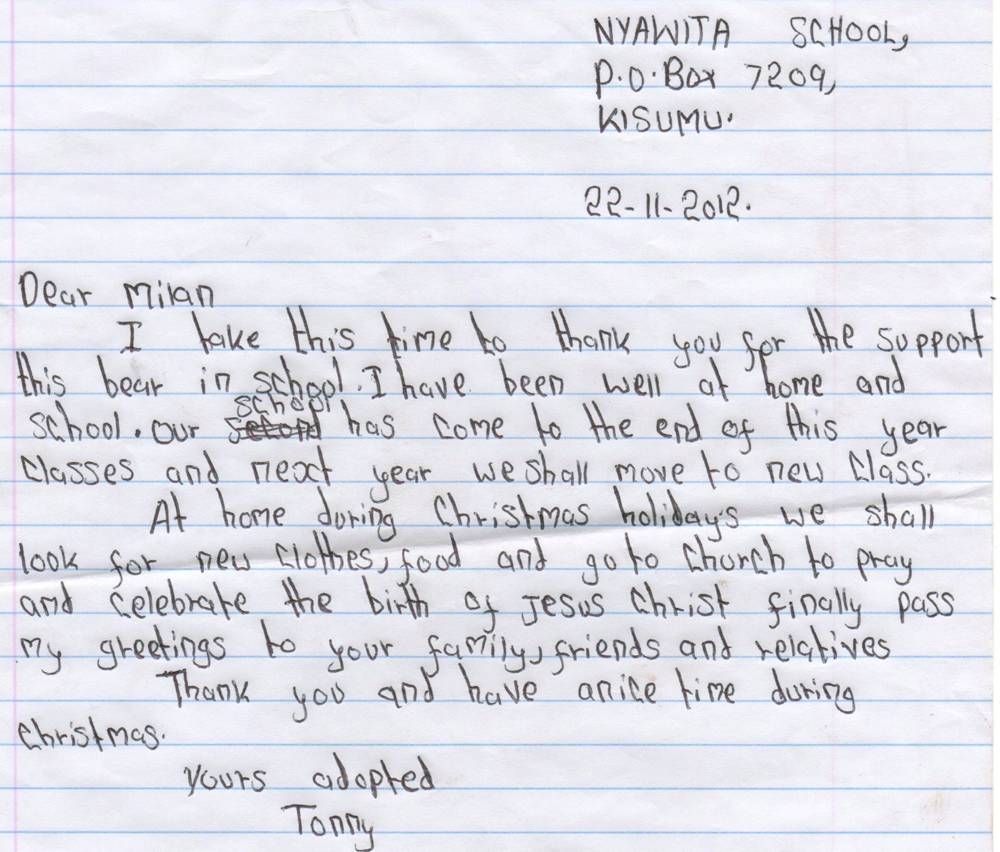 NYAWITA SCHOOL,
P.O.Box 7209,
KISUMU.
22-11-2012.
Dear Milan
I take this time to thank you for the support
this bear in school. I have been well at home and
school. Our school has come to the end of this year
Classes and next year we shall move to new Class.
At home during Christmas holidays we shall
look for new clothes, food and go to Church to pray
and Celebrate the birth of Jesus Christ finally pass
my greetings to your family, friends and relatives
Thank you and have anice time during
Christmas.
yours adopted
Tonny